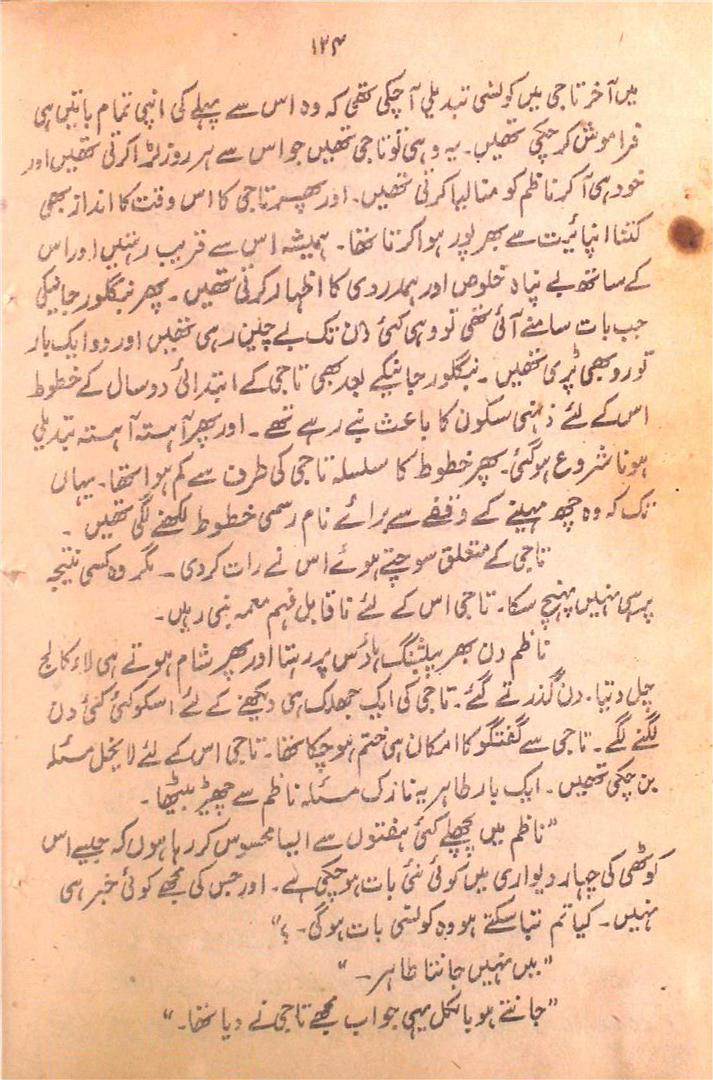 ۱۲۴
میں آخر تاجی میں کونسی تبدیلی آ چکی تھی کہ وہ اس سے پہلے کی اپنی تمام باتیں ہی
فراموش کر چکی تھیں۔ یہ وہی تو تاجی تھیں جو اس سے ہر روز لڑا کرتی تھیں اور
خود ہی آ کر ناظم کو منا لیا کرتی تھیں۔ اور پھر تاجی کا اس وقت کا انداز بھی
کتنا اپنائیت سے بھر پور ہوا کرتا تھا۔ ہمیشہ اس سے قریب رہتیں اور اس
کے ساتھ بے پناہ خلوص اور ہمدردی کا اظہار کرتی تھیں۔ پھر بنگلور جانیکی
جب بات سامنے آئی تھی تو وہی کئی دن تک بے چین رہی تھیں اور دو ایک بار
تو رو بھی پڑی تھیں۔ بنگلور جانیکے بعد بھی تاجی کے ابتدائی دو سال کے خطوط
اس کے لئے ذہنی سکون کا باعث بنے رہے تھے۔ اور پھر آہستہ آہستہ تبدیلی
ہونا شروع ہو گئی۔ پھر خطوط کا سلسلہ تاجی کی طرف سے کم ہوا تھا۔ یہاں
تک کہ وہ چھ مہینے کے وقفے سے برائے نام رسمی خطوط لکھنے لگی تھیں۔
تاجی کے متعلق سوچتے ہوئے اس نے رات کر دی۔ مگر وہ کسی نتیجہ
پر سہی نہیں پہنچ سکا۔ تاجی اس کے لئے ناقابل فہم معمہ بنی رہیں۔
ناظم دن بھر پبلشنگ ہاؤس پر رہتا اور پھر شام ہوتے ہی لاء کالج
چل دیتا۔ دن گذرتے گئے۔ تاجی کی ایک جھلک ہی دیکھنے کے لئے اسکو کئی کئی دن
لگنے لگے۔ تاجی سے گفتگو کا امکان ہی ختم ہو چکا تھا۔ تاجی اس کے لئے لا یخل مسئلہ
بن چکی تھیں۔ ایک بار طاہر یہ نازک مسئلہ ناظم سے چھیڑ بیٹھا۔
"ناظم میں پچھلے کئی ہفتوں سے ایسا محسوس کر رہا ہوں کہ جیسے اس
کوٹھی کی چہار دیواری میں کوئی نئی بات ہو چکی ہے۔ اور جس کی مجھے کوئی خبر ہی
نہیں۔ کیا تم بتا سکتے ہو وہ کونسی بات ہوگی۔؟"
"میں نہیں جانتا طاہر۔"
"جانتے ہو بالکل یہی جواب مجھے تاجی نے دیا تھا۔"